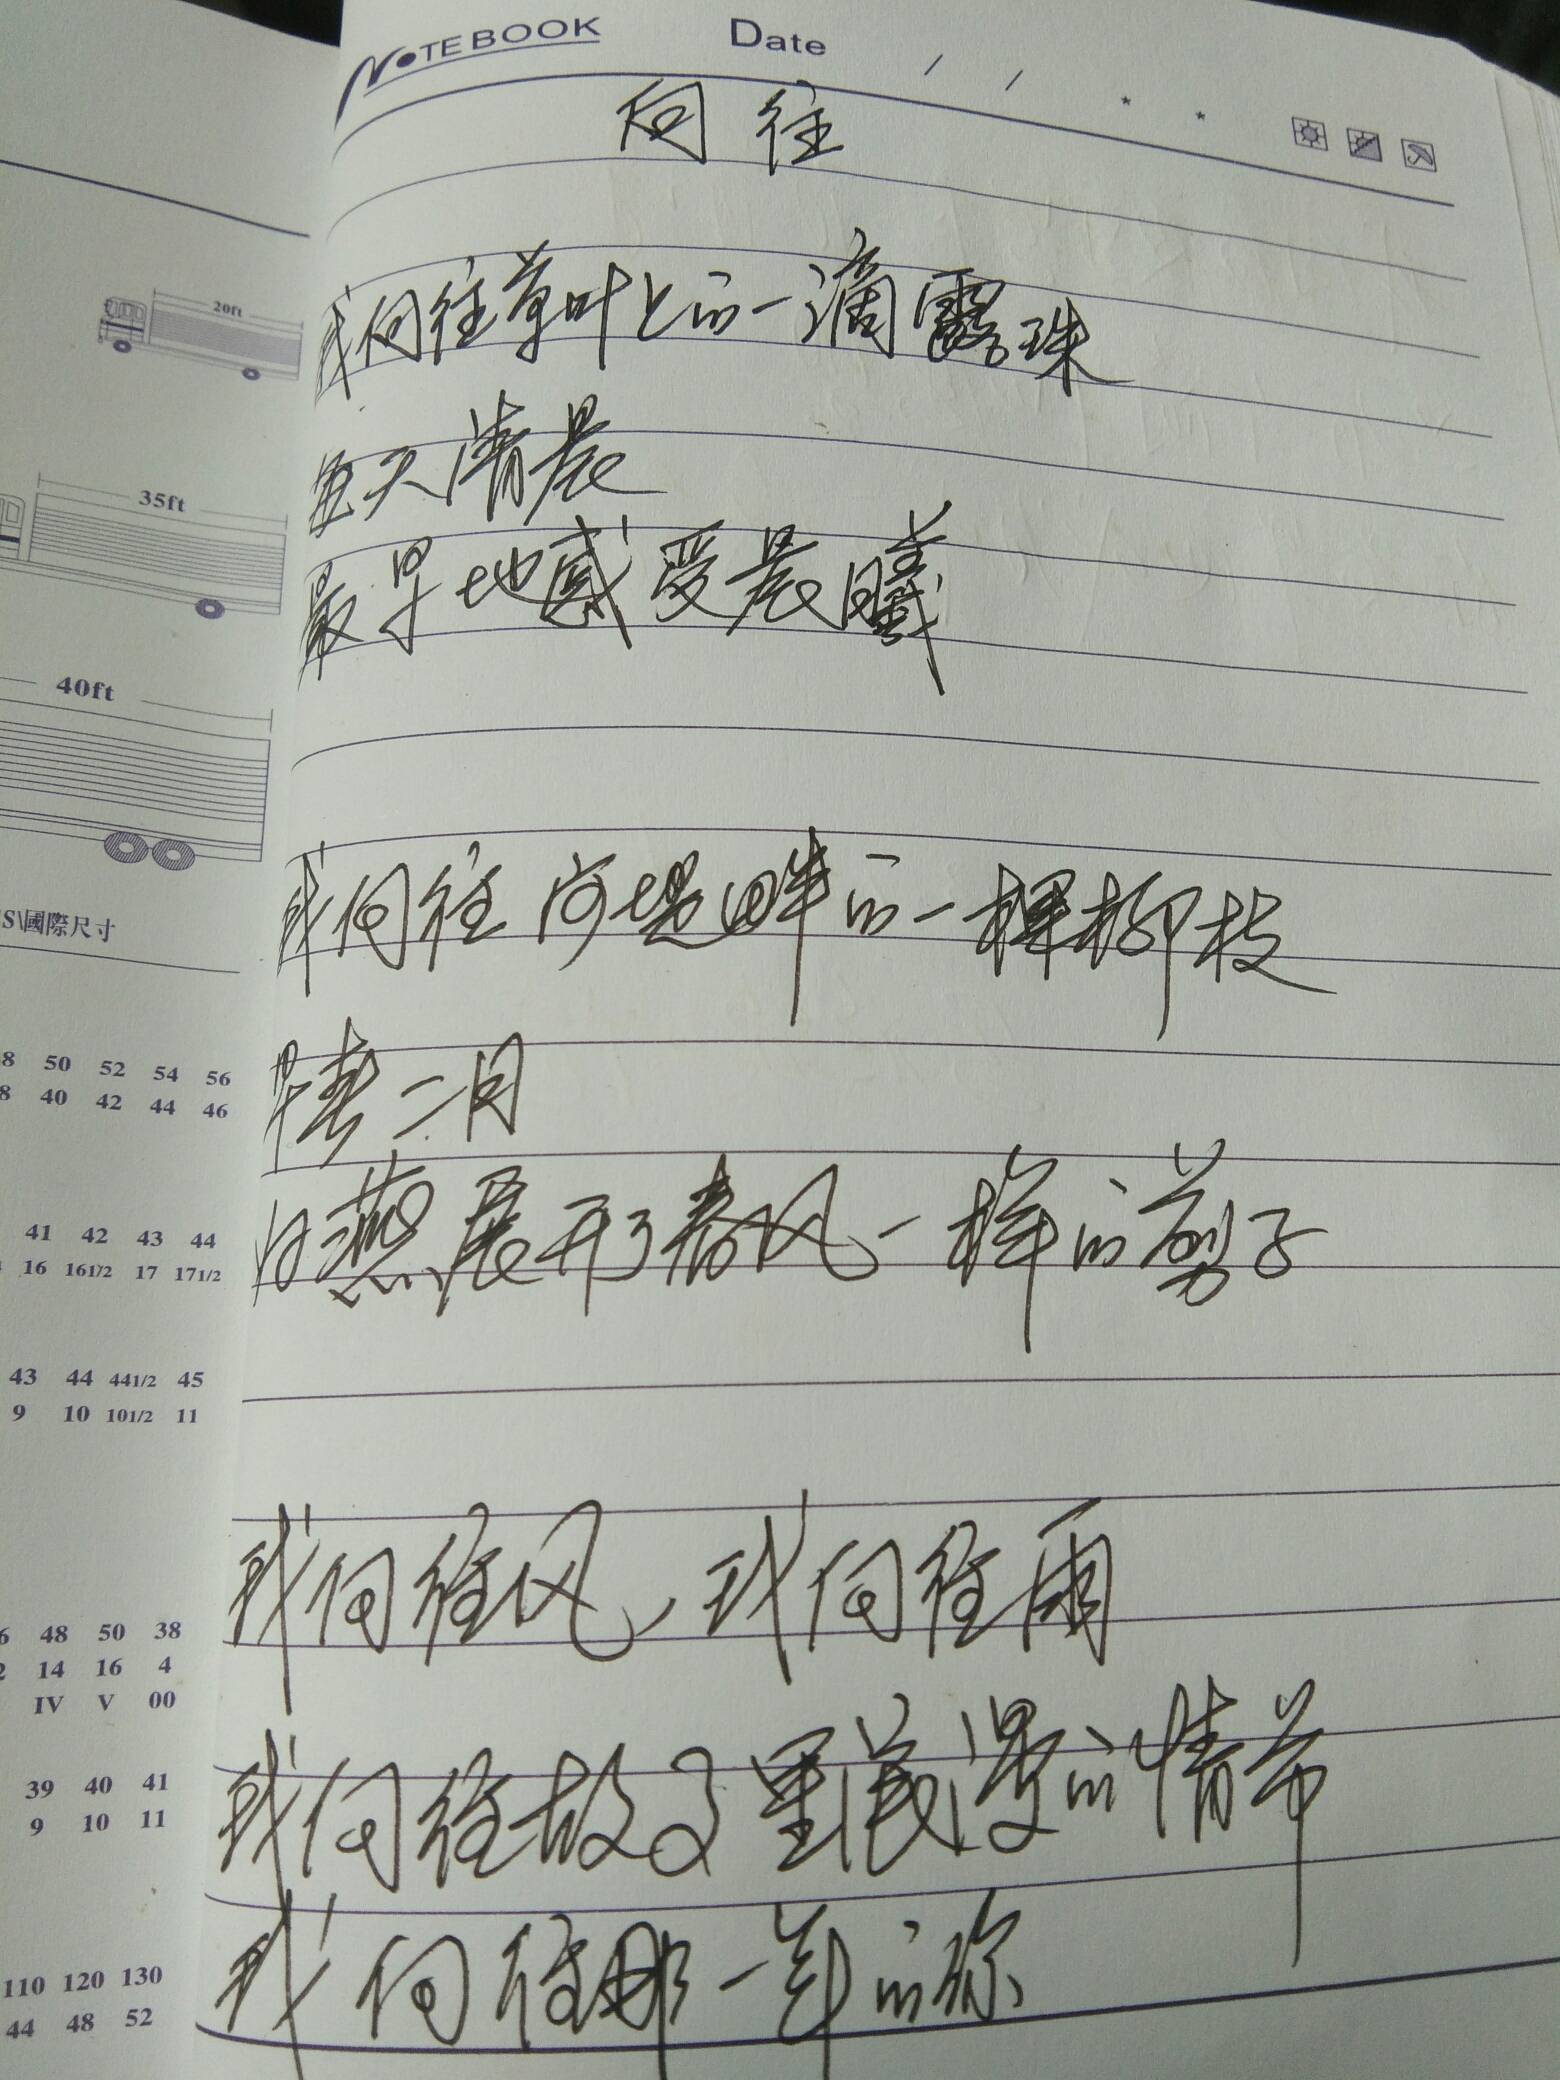 NOTEBOOK Date / /
向往
我向往草叶上的一滴露珠
每天清晨
最早地感受晨曦
我向往河堤畔的一棵柳枝
早春二月
燕展开了春风一样的剪子
我向往风，我向往雨
我向往故事里浪漫的情节
我向往那一年的你
20ft
35ft
40ft
S\國際尺寸
8 50 52 54 56
8 40 42 44 46
41 42 43 44
16 161/2 17 171/2
43 44 441/2 45
9 10 101/2 11
6 48 50 38
2 14 16 4
IV V 00
39 40 41
9 10 11
110 120 130
44 48 52